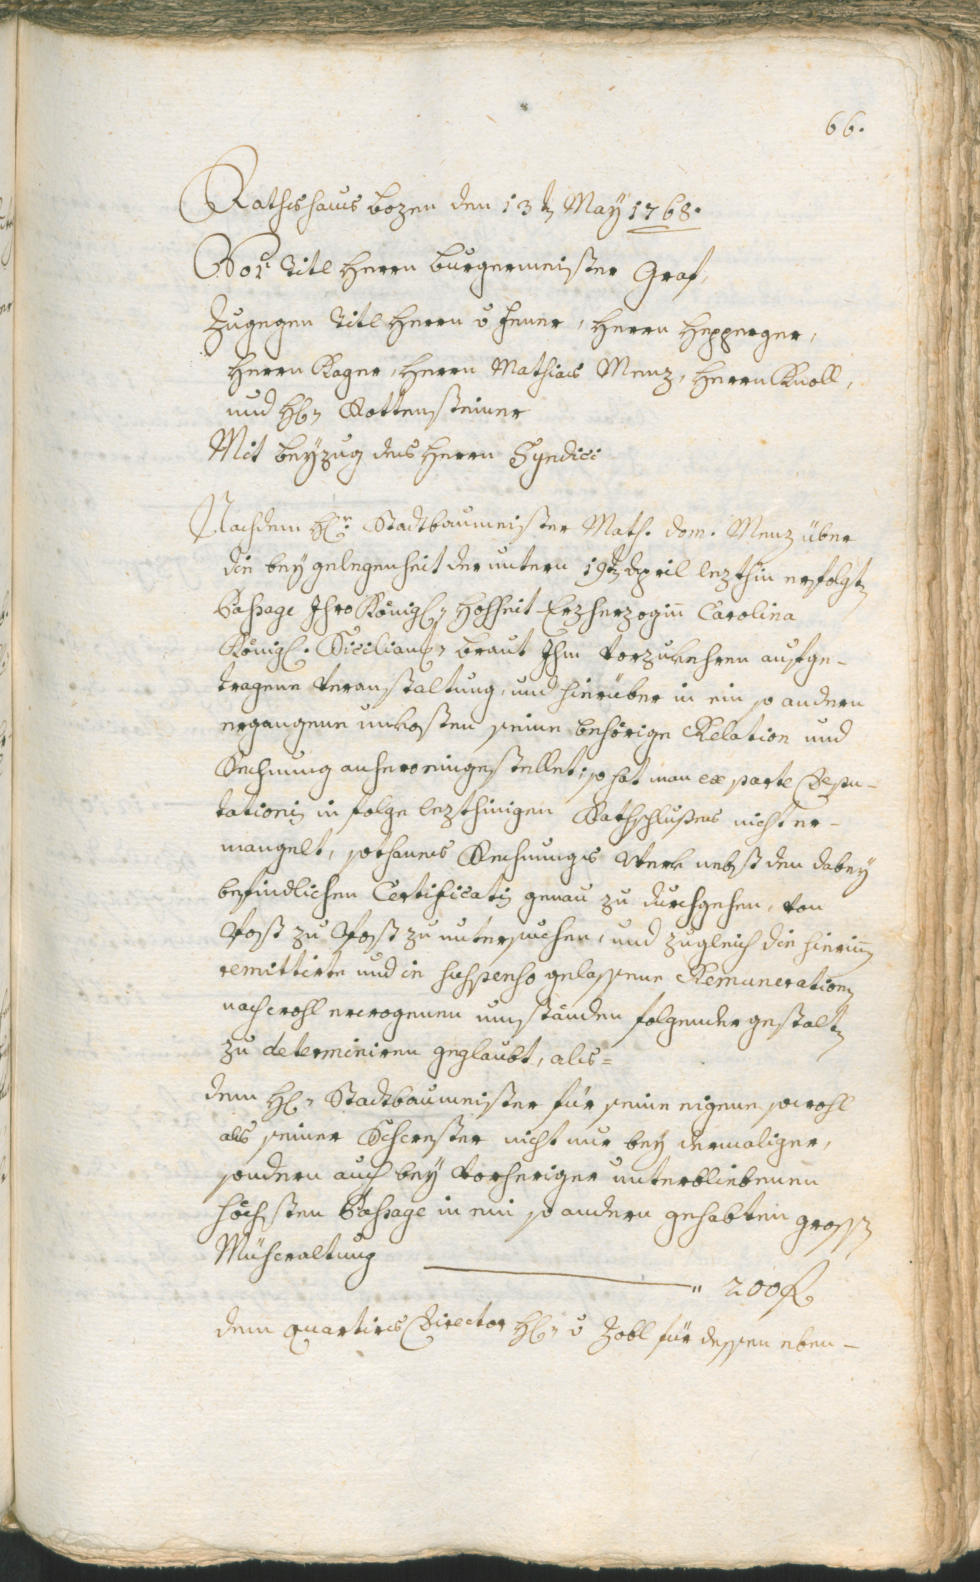 66.
Rathshaus Bozen den 13t May 1768.
Vor Titl Herrn Burgermeister Graf,
Zugegen Titl Herrn v Jenner, Herrn Hepperger,
Herrn Kager, Herrn Mathias Menz, Herrn Knoll,
und H: Rottensteiner
Mit beyzug des Herrn Syndici
Nachdem Hr: Stadtbaumeister Math. Dom. Menz über
die bey gelegenheit der untern 19t April lezthin erfolgt
Passage Ihro Königl: Hoheit Erzherzogin Carolina
Königl. Sicilian: Braut Ihm vorzukehren aufge-
tragene veranstaltung, und hierüber in ein so andern
ergangene unkosten seine behörige Relation und
Rechnung anhero eingestellet; so hat man ex parte Depu-
tationis in folge lezthinigen Rathschlußes nicht er-
mangelt, sothanes Rechnungs Werk nebst den dabey
befindlichen Certificatis genau zu durchgehen, von
Post zu Post zu untersuchen, und zugleich die hierin
remittirte und in suspenso gelassene Remuneration
nach wohl erwogenen umständen folgender gestalt
zu determiniren geglaubt, als=
dem H: Stadtbaumeister für seine eigene sowohl
als seiner Schwester nicht nur bey dermaliger,
sondern auch bey vorheriger unterbliebenen
höchsten Passage in ein so andern gehabten gross
Mühewaltung " 200 f
dem quartirs Director H: v Zobl für dessen eben-